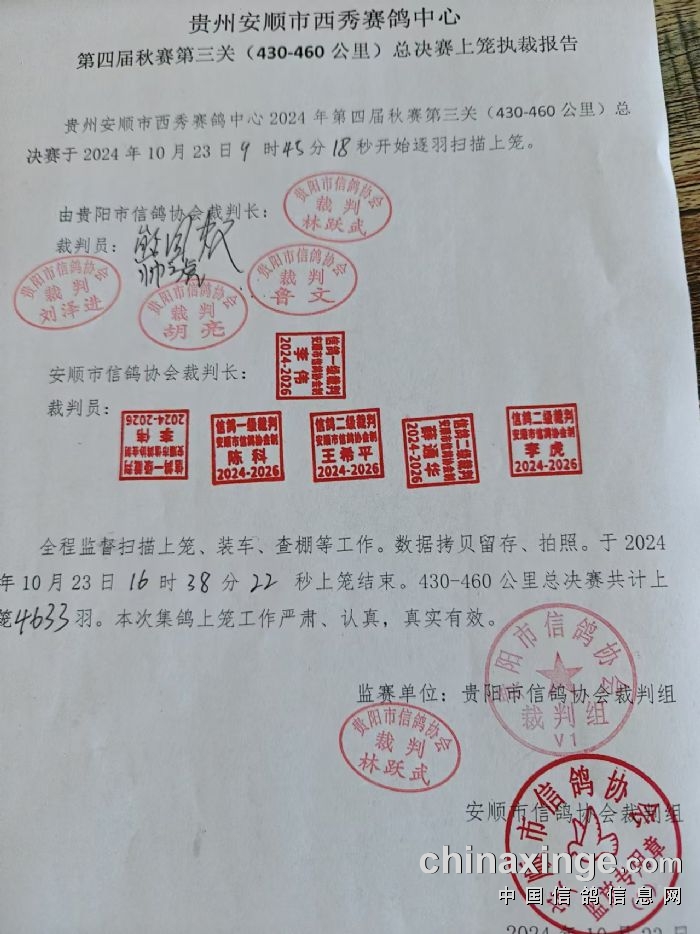 贵州安顺市西秀赛鸽中心
第四届秋赛第三关（430-460公里）总决赛上笼执裁报告
贵州安顺市西秀赛鸽中心2024年第四届秋赛第三关（430-460公里）总
决赛于2024年10月23日9时45分18秒开始逐羽扫描上笼。
由贵阳市信鸽协会裁判长：
贵阳市信鸽协会
裁判
林跃武
裁判员：
贵阳市信鸽协会
裁判
刘泽进
贵阳市信鸽协会
裁判
胡亮
贵阳市信鸽协会
裁判
鲁文
安顺市信鸽协会裁判长：
信鸽一级裁判
安顺市信鸽协会制
李伟
2024-2026
裁判员：
信鸽一级裁判
安顺市信鸽协会制
李伟
2024-2026
信鸽一级裁判
安顺市信鸽协会制
陈科
2024-2026
信鸽二级裁判
安顺市信鸽协会制
王希平
2024-2026
信鸽二级裁判
安顺市信鸽协会制
通华
2024-2026
信鸽二级裁判
安顺市信鸽协会制
李虎
2024-2026
全程监督扫描上笼、装车、查棚等工作。数据拷贝留存、拍照。于2024
年10月23日16时38分22秒上笼结束。430-460公里总决赛共计上
笼4633羽。本次集鸽上笼工作严肃、认真，真实有效。
贵阳市信鸽协会
裁判组
V1
监赛单位：贵阳市信鸽协会裁判组
贵阳市信鸽协会
裁判
林跃武
安顺市信鸽协会裁判组
市信鸽协会
监赛专用章
chinaxinge.com
中国信鸽信息网
2024年10月23日